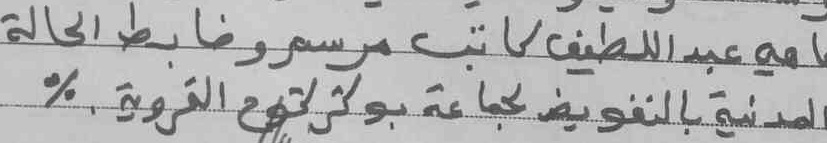 عبد اللطيف كاتب مرسم وضابط الحالة
المدنية بالتفويض لجماعة بوكركوح القروية ./.